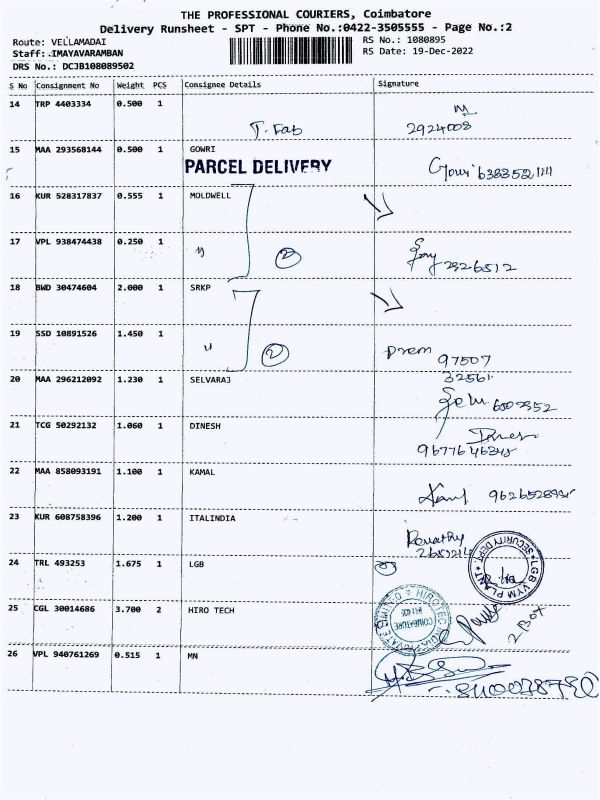 THE PROFESSIONAL COURIERS, Coimbatore
Delivery Runsheet - SPT - Phone No.:0422-3505555 - Page No.:2
Route: VELLAMADAI
RS No.: 1080895
Staff: IMAYAVARAMBAN
RS Date: 19-Dec-2022
DRS No.: DCJB108089502
S No Consignment No Weight PCS Consignee Details Signature
14 TRP 4403334 0.500 1
T. Fab 2924008
15 MAA 293568144 0.500 1 GOWRI
PARCEL DELIVERY
Gowri
16 KUR 528317837 0.555 1 MOLDWELL
17 VPL 938474438 0.250 1
" 2 2926512
18 BWD 30474604 2.000 1 SRKP
19 SSD 10891526 1.450 1
" 2 Prem 97507
32561
20 MAA 296212092 1.230 1 SELVARAJ
21 TCG 50292132 1.060 1 DINESH
22 MAA 858093191 1.100 1 KAMAL
23 KUR 608758396 1.200 1 ITALINDIA
24 TRL 493253 1.675 1 LGB
LGB VYM PLANT
SECURITY DEPT.
25 CGL 30014686 3.700 2 HIRO TECH
COIMBATORE
2 Box
26 VPL 940761269 0.515 1 MN